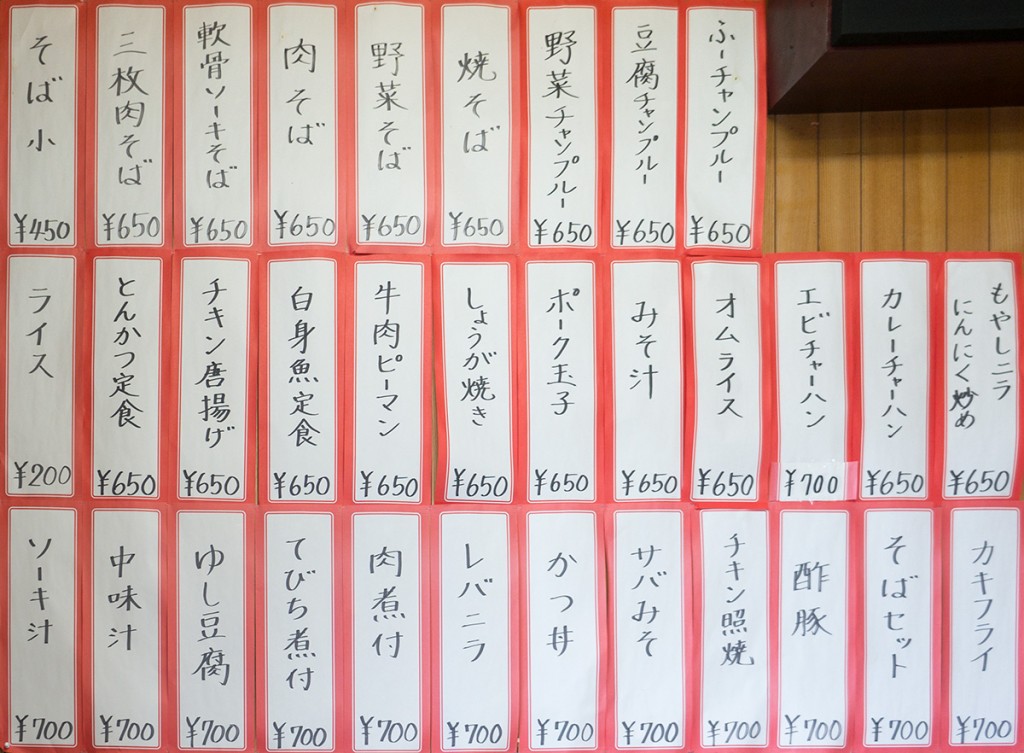 そば小
¥450
三枚肉そば
¥650
軟骨ソーキそば
¥650
肉そば
¥650
野菜そば
¥650
焼そば
¥650
野菜チャンプルー
¥650
豆腐チャンプルー
¥650
ふーチャンプルー
¥650
ライス
¥200
とんかつ定食
¥650
チキン唐揚げ
¥650
白身魚定食
¥650
牛肉ピーマン
¥650
しょうが焼き
¥650
ポーク玉子
¥650
みそ汁
¥650
オムライス
¥650
エビチャーハン
¥700
カレーチャーハン
¥650
もやしニラ
にんにく炒め
¥650
ソーキ汁
¥700
中味汁
¥700
ゆし豆腐
¥700
てびち煮付
¥700
肉煮付
¥700
レバニラ
¥700
かつ丼
¥700
サバみそ
¥700
チキン照焼
¥700
酢豚
¥700
そばセット
¥700
カキフライ
¥700